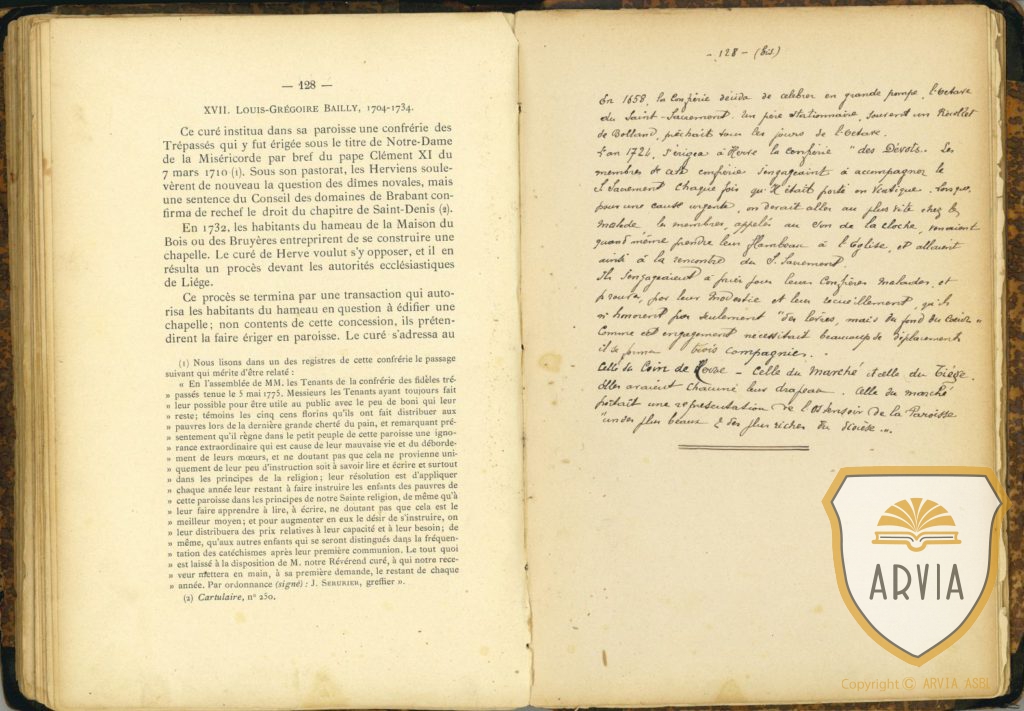 — 128 —
XVII. LOUIS-GRÉGOIRE BAILLY, 1704-1734.
Ce curé institua dans sa paroisse une confrérie des
Trépassés qui y fut érigée sous le titre de Notre-Dame
de la Miséricorde par bref du pape Clément XI du
7 mars 1710 (1). Sous son pastorat, les Herviens soule-
vèrent de nouveau la question des dîmes novales, mais
une sentence du Conseil des domaines de Brabant con-
firma de rechef le droit du chapitre de Saint-Denis (2).
En 1732, les habitants du hameau de la Maison du
Bois ou des Bruyères entreprirent de se construire une
chapelle. Le curé de Herve voulut s'y opposer, et il en
résulta un procès devant les autorités ecclésiastiques
de Liége.
Ce procès se termina par une transaction qui auto-
risa les habitants du hameau en question à édifier une
chapelle; non contents de cette concession, ils préten-
dirent la faire ériger en paroisse. Le curé s'adressa au
(1) Nous lisons dans un des registres de cette confrérie le passage
suivant qui mérite d'être relaté :
« En l'assemblée de MM. les Tenants de la confrérie des fidèles tré-
» passés tenue le 5 mai 1775. Messieurs les Tenants ayant toujours fait
» leur possible pour être utile au public avec le peu de boni qui leur
» reste; témoins les cinq cens florins qu'ils ont fait distribuer aux
» pauvres lors de la dernière grande cherté du pain, et remarquant pré-
» sentement qu'il règne dans le petit peuple de cette paroisse une igno-
» rance extraordinaire qui est cause de leur mauvaise vie et du déborde-
» ment de leurs mœurs, et ne doutant pas que cela ne provienne uni-
» quement de leur peu d'instruction soit à savoir lire et écrire et surtout
» dans les principes de la religion; leur résolution est d'appliquer
» chaque année leur restant à faire instruire les enfants des pauvres de
» cette paroisse dans les principes de notre Sainte religion, de même qu'à
» leur faire apprendre à lire, à écrire, ne doutant pas que cela est le
» meilleur moyen; et pour augmenter en eux le désir de s'instruire, on
» leur distribuera des prix relatives à leur capacité et à leur besoin; de
» même, qu'aux autres enfants qui se seront distingués dans la fréquen-
» tation du catéchismes après leur première communion. Le tout quoi
» est laissé à la disposition de M. notre Révérend curé, à qui notre rece-
» veur mettera en main, à sa première demande, le restant de chaque
» année. Par ordonnance (signé) : J. SERURIER, greffier ».
(2) Cartulaire, n° 250.
- 128 - (bis)
En 1658, la Confrérie décida de célébrer en grande pompe, l'Octave
du Saint-Sacrement. Un père stationnaire, souvent un Récollet
de Bolland, prêchait tous les jours de l'Octave.
L'an 1724, s'érigea à Herve la Confrérie "des Dévots. Les
membres de cette confrérie s'engageaient à accompagner le
S. Sacrement chaque fois qu'il était porté en Viatique. Lorsque,
pour une cause urgente, on devait aller au plus vite chez le
malade, les membres, appelés au son de la cloche, venaient
quand même prendre leur flambeau à l'Eglise, et allaient
ainsi à la rencontre du S. Sacrement.
Ils s'engageaient à prier pour leurs Confrères malades, et
prouver, par leur modestie et leur recueillement, qu'ils
n'honorent pas seulement "des lèvres, mais du fond du Coeur"
Comme cet engagement nécessitait beaucoup de déplacements
il se forma trois compagnies.
Celle du Coin de Herve - Celle du Marché et celle du Tiège.
Elles avaient chacune leur drapeau. Celle du marché
portait une représentation de l'Ostensoir de la Paroisse
"un des plus beaux & des plus riches du diocèse".
ARVIA
Copyright © ARVIA ASBL